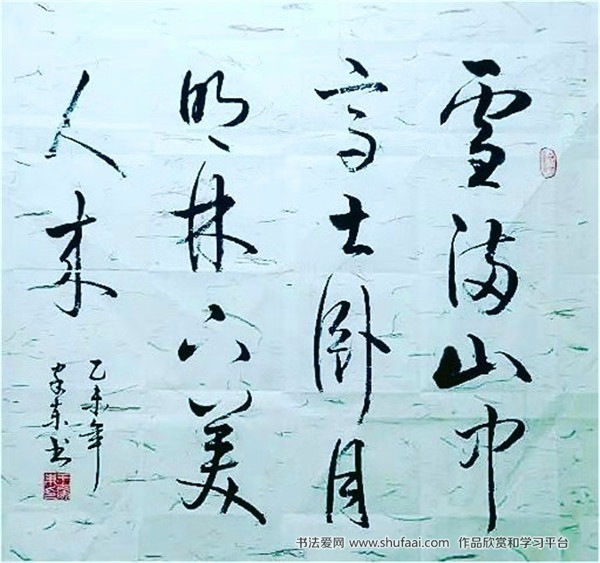 雪满山中
高士卧月
明林下美
人来
乙未年
东书
书法爱网 www.shufaai.com 作品欣赏和学习平台